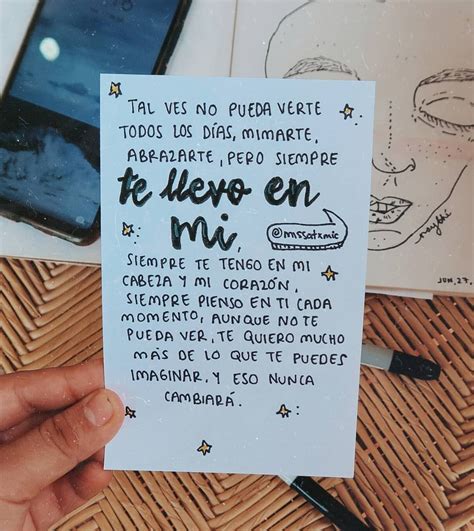 TAL VES NO PUEDA VERTE
TODOS LOS DÍAS, MIMARTE,
ABRAZARTE, PERO SIEMPRE
te llevo en
mi,
@mssatxmic
SIEMPRE TE TENGO EN MI
CABEZA Y MI CORAZÓN,
SIEMPRE PIENSO EN TI CADA
MOMENTO, AUNQUE NO TE
PUEDA VER, TE QUIERO MUCHO
MÁS DE LO QUE TE PUEDES
IMAGINAR, Y ESO NUNCA
CAMBIARÁ.
JUN, 27.